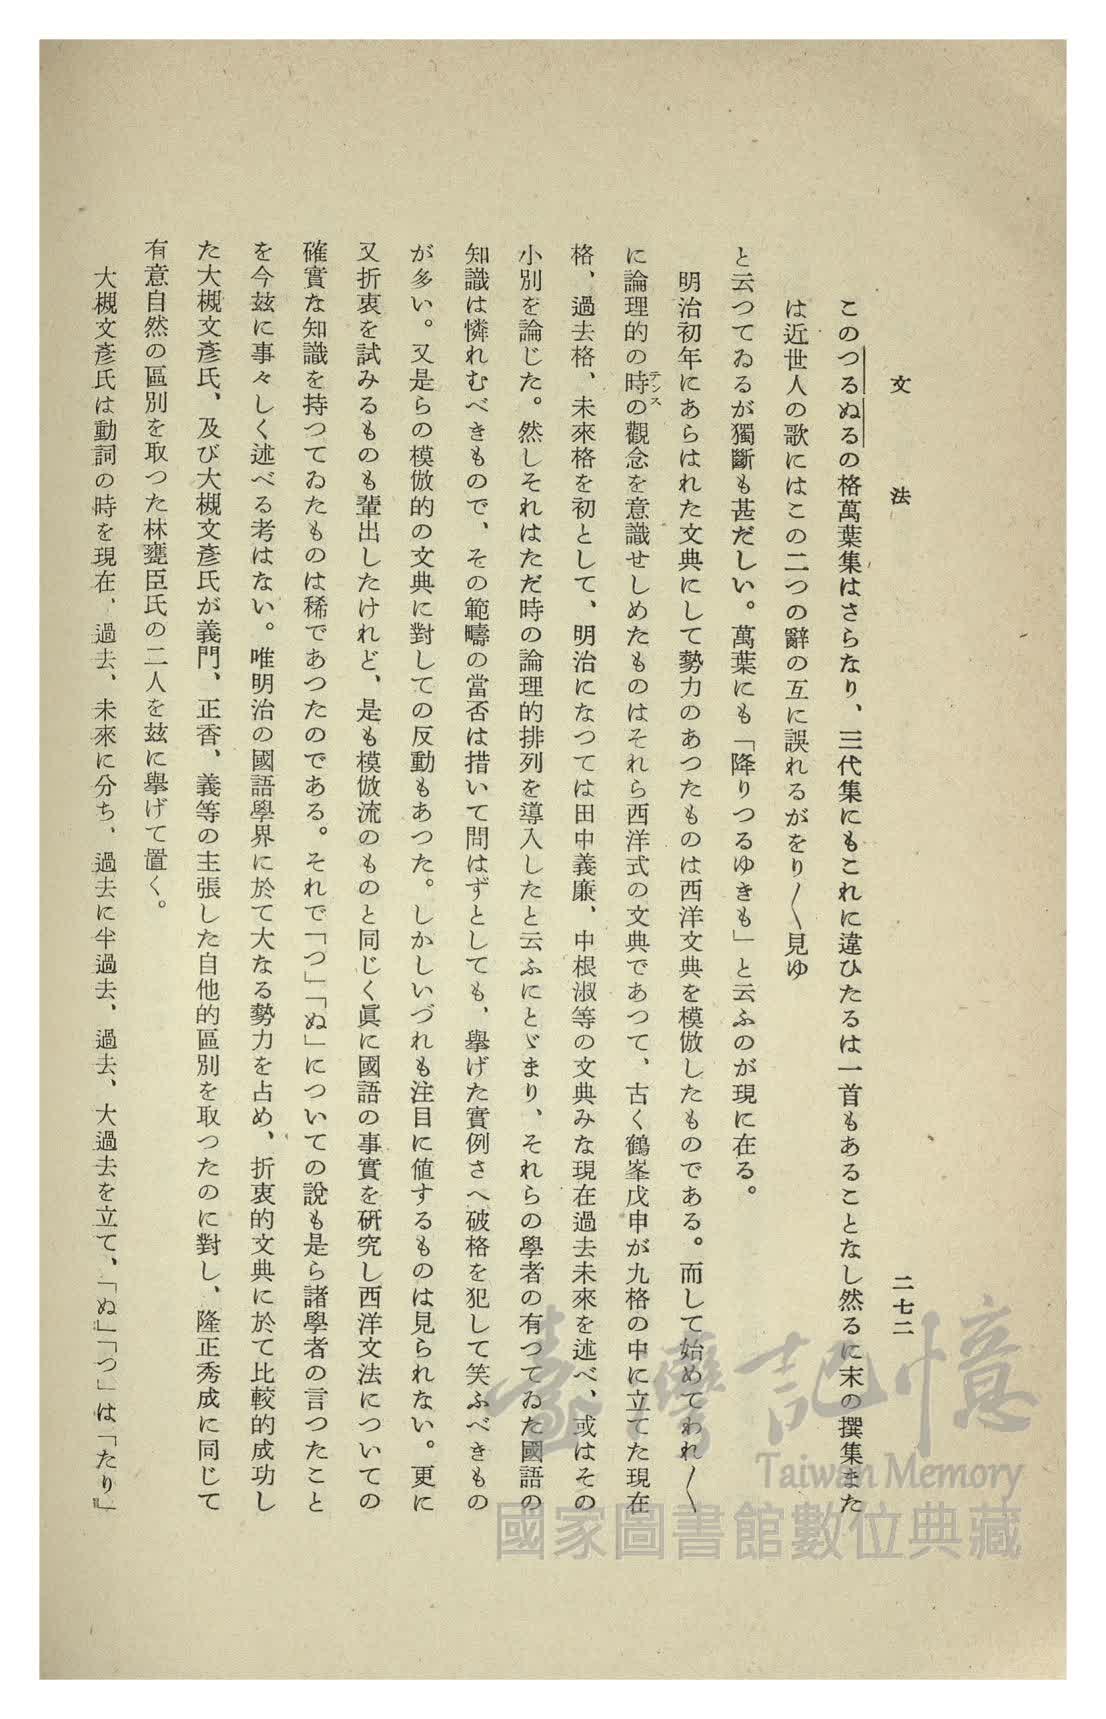 文法
二七二
このつるぬるの格萬葉集はさらなり、三代集にもこれに違ひたるは一首もあることなし然るに末の撰集また
は近世人の歌にはこの二つの辭の互に誤れるがをり〳〵見ゆ
と云つてゐるが獨斷も甚だしい。萬葉にも「降りつるゆきも」と云ふのが現に在る。
明治初年にあらはれた文典にして勢力のあつたものは西洋文典を模倣したものである。而して始めてわれ〳〵
に論理的の時の觀念を意識せしめたものはそれら西洋式の文典であつて、古く鶴峯戊申が九格の中に立てた現在
テンス
格、過去格、未來格を初として、明治になつては田中義廉、中根淑等の文典みな現在過去未來を述べ、或はその
小別を論じた。然しそれはただ時の論理的排列を導入したと云ふにとゞまり、それらの學者の有つてゐた國語の
知識は憐れむべきもので、その範疇の當否は措いて問はずとしても、擧げた實例さへ破格を犯して笑ふべきもの
が多い。又是らの模倣的の文典に對しての反動もあつた。しかしいづれも注目に値するものは見られない。更に
又折衷を試みるものも輩出したけれど、是も模倣流のものと同じく眞に國語の事實を硏究し西洋文法についての
確實な知識を持つてゐたものは稀であつたのである。それで「つ」「ぬ」についての說も是ら諸學者の言つたこと
を今玆に事々しく述べる考はない。唯明治の國語學界に於て大なる勢力を占め、折衷的文典に於て比較的成功し
た大槻文彥氏、及び大槻文彥氏が義門、正香、義等の主張した自他的區別を取つたのに對し、隆正秀成に同じて
有意自然の區別を取つた林甕臣氏の二人を玆に擧げて置く。
大槻文彥氏は動詞の時を現在、過去、未來に分ち、過去に半過去、過去、大過去を立て、「ぬ」「つ」は「たり」
臺灣記憶
Taiwan Memory
國家圖書館數位典藏